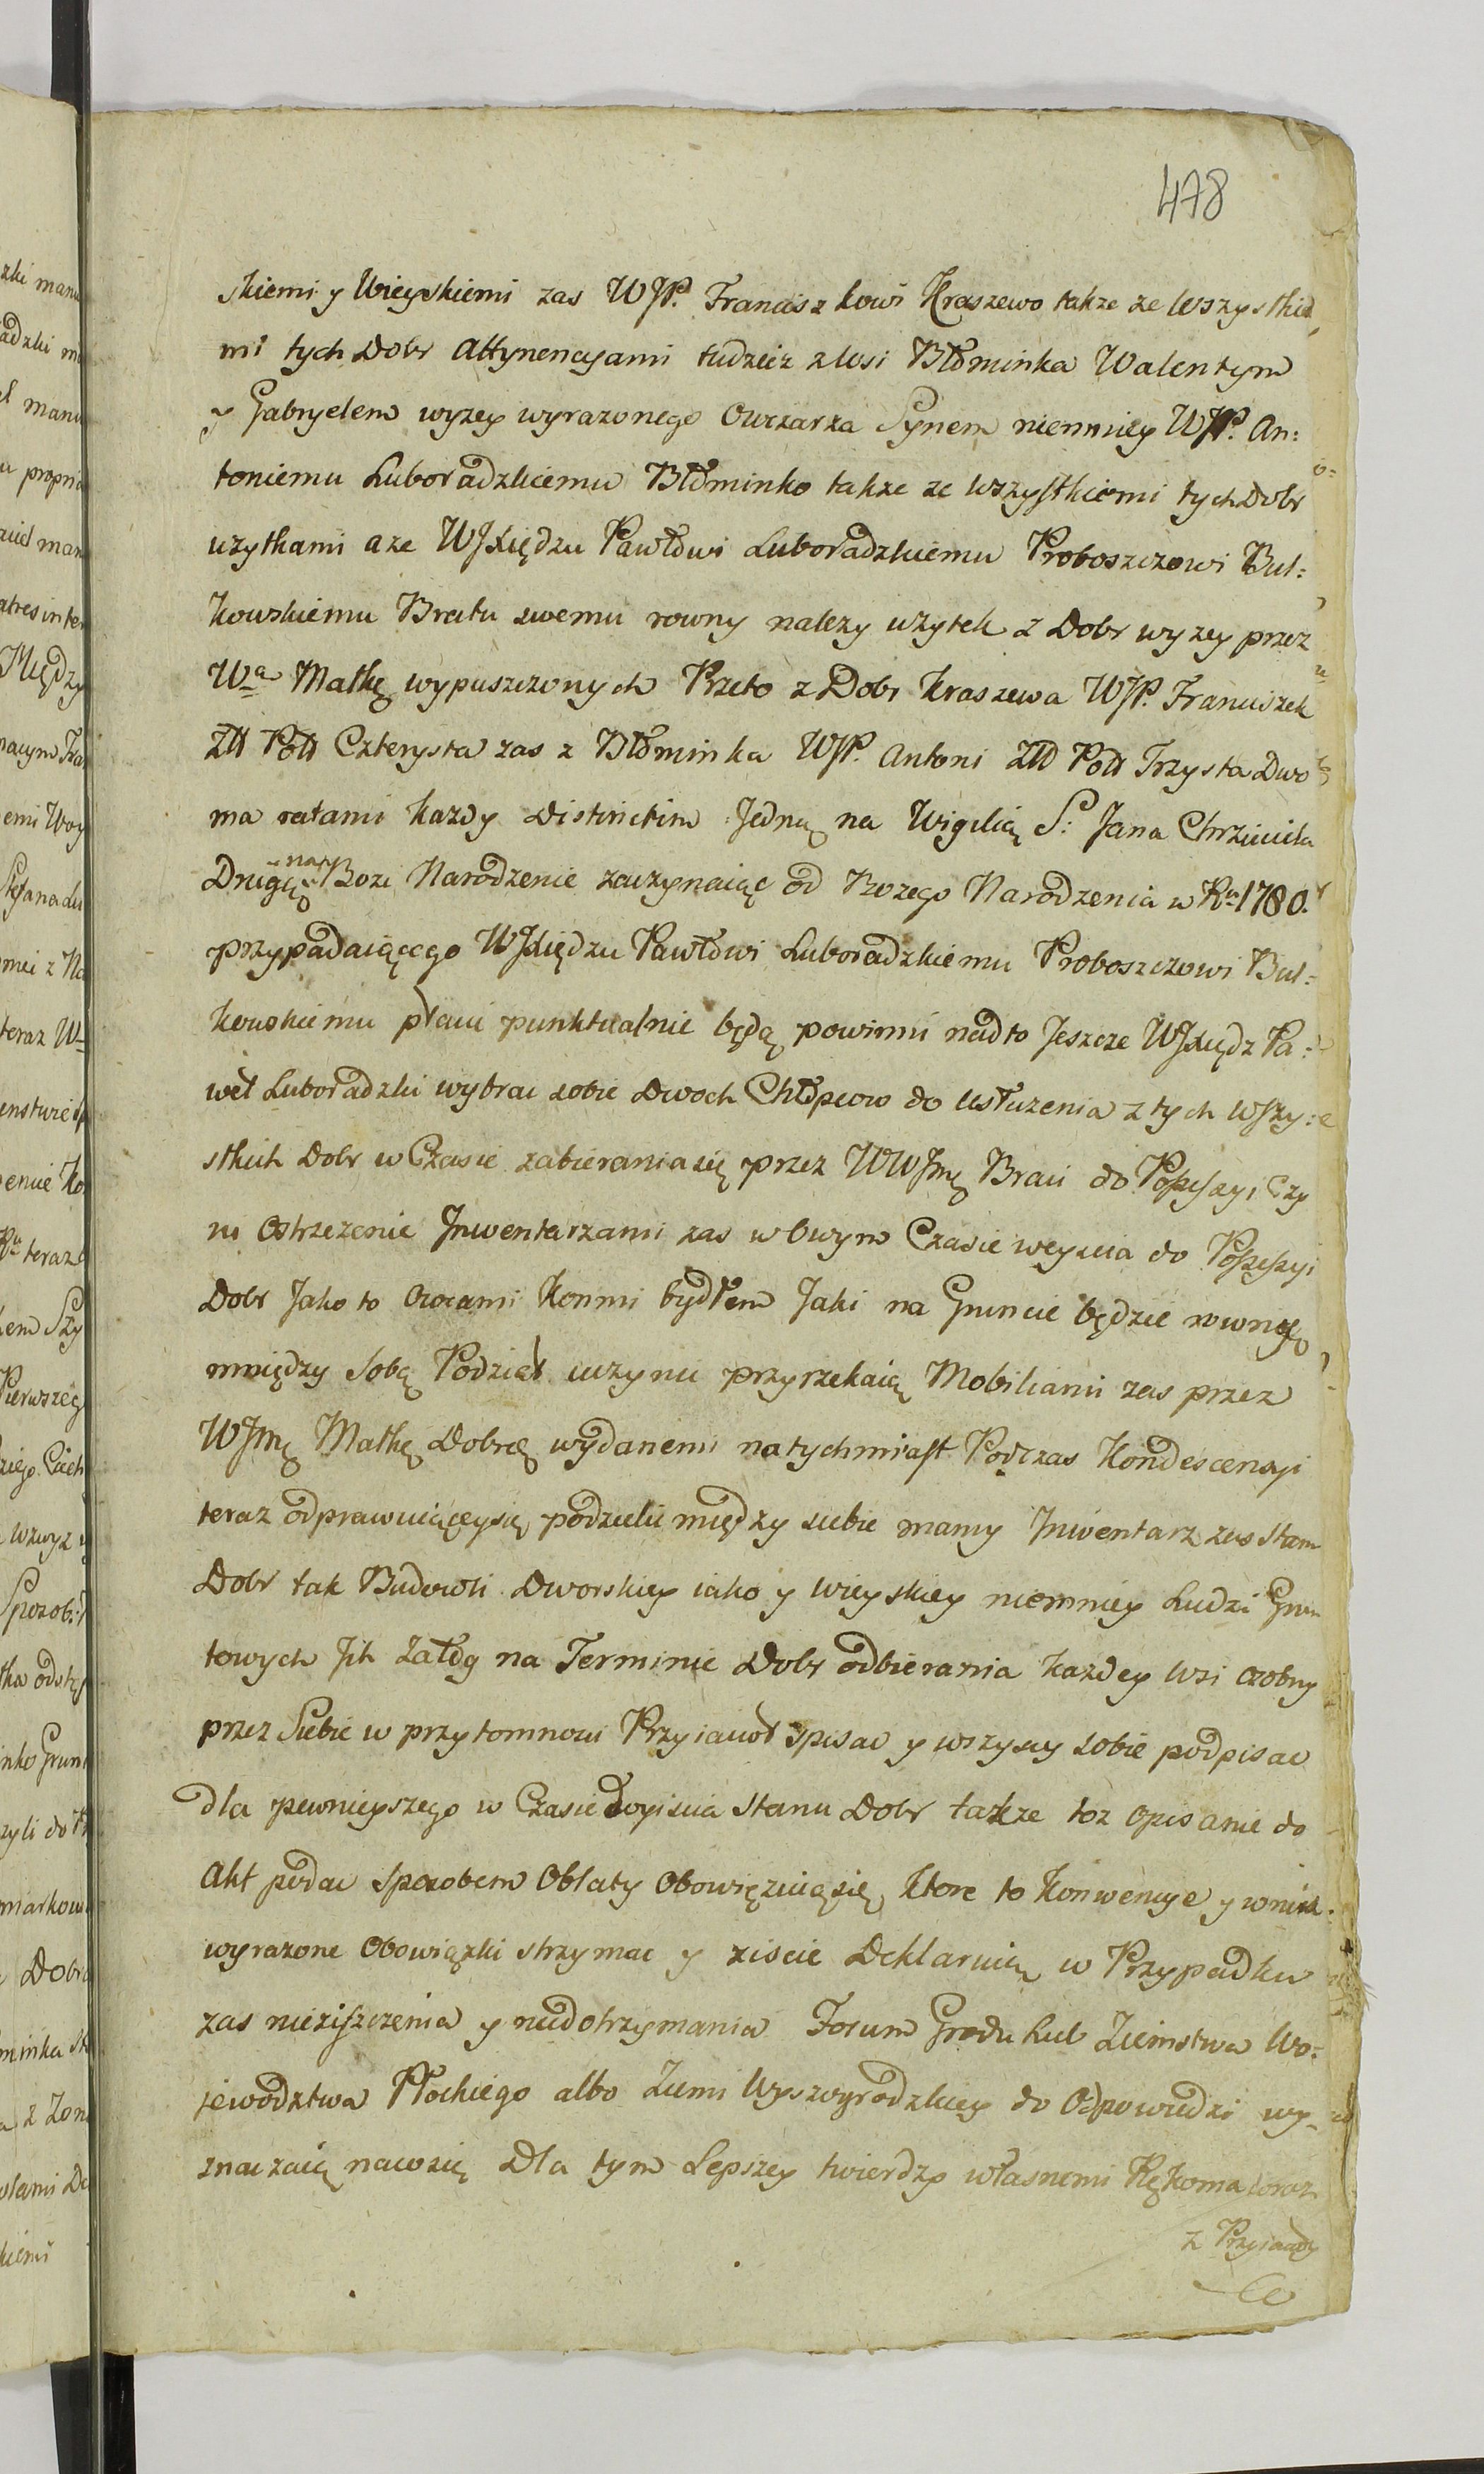 478
skiemi y Wieyskiemi zas WJP. Franciszkowi Kraszewo takze ze Wszystkie,
mi tych Dobr Attynencyami tudziez z Wsi Błominka Walentym
y Gabryelem wyzey wyrazonego Owczarza Synem niemniey WJP. An:
toniemu Luboradzkiemu Błominko takze ze Wszystkiemi tych Dobr
uzytkami a ze WJXiędzu Pawłowi Luboradzkiemu Proboszczowi Bul:
kowskiemu Bratu swemu rowny nalezy uzytek z Dobr wyzey przez
Wa Matkę wypuszczonych Przeto z Dobr Kraszewa WJP. Franciszek
Złł Poll Czterysta zas z Błominka WJP. Antoni Złł Poll Trzysta Dwo
ma ratami kazdy Distinctim Jedną na Wigilią S: Jana Chrzciciela
Drugią na Boze Narodzenie zaczynaiąc od Bozego Narodzenia w Ru 1780.
przypadaiącego WJXiędzu Pawłowi Luboradzkiemu Proboszczowi Bul:
kowskiemu płacic punktualnie będą powinni nadto Jeszcze WJXiądz Pa:
weł Luboradzki wybrac sobie Dwoch Chłopcow do usłuzenia z tych Wszy:
stkich Dobr w Czasie zabierania się przez WWJmę Braci do Possessyi Czy
ni Ostrzezenie Jnwentarzami zas w Owym Czasie weyscia do Possessyi
Dobr Jako to Owcami Konmi bydłem Jaki na Gruncie będzie rowny
między Sobą Podział uczynic przyrzekaią Mobiliami zas przez
WJmę Matkę Dobrą wydanemi natychmiast Podczas Kondescensyi
teraz odprawuiącey się podzielic między siebie mamy Jnwentarz zas Stanu
Dobr tak Budowli Dworskiey iako y wieyskiey niemniey Ludzi Grun
towych Jch Załog na Terminie Dobr odbierania kazdey Wsi Osobny
przez Siebie w przytomnosci Przyiacioł spisac y wszyscy sobie podpisac
dla pewnieyszego w Czasie wyiscia Stanu Dobr takze toz opisanie do
Akt podac sposobem Oblaty Obowięzuią się, Ktore to Konwencye y wniey
wyrazone Obowiązki strzymac y ziscic Deklaruią w Przypadku
zas nieziszczenia y niedotrzymania Forum Grodu lub Ziemstwa Wo:
jewodztwa Płockiego albo Ziemi Wyszogrodzkiey do Odpowiedzi wy-
znaczaią naco się Dla tym Lepszey twierdzy własnemi Rękoma oraz
z Przyiacioły